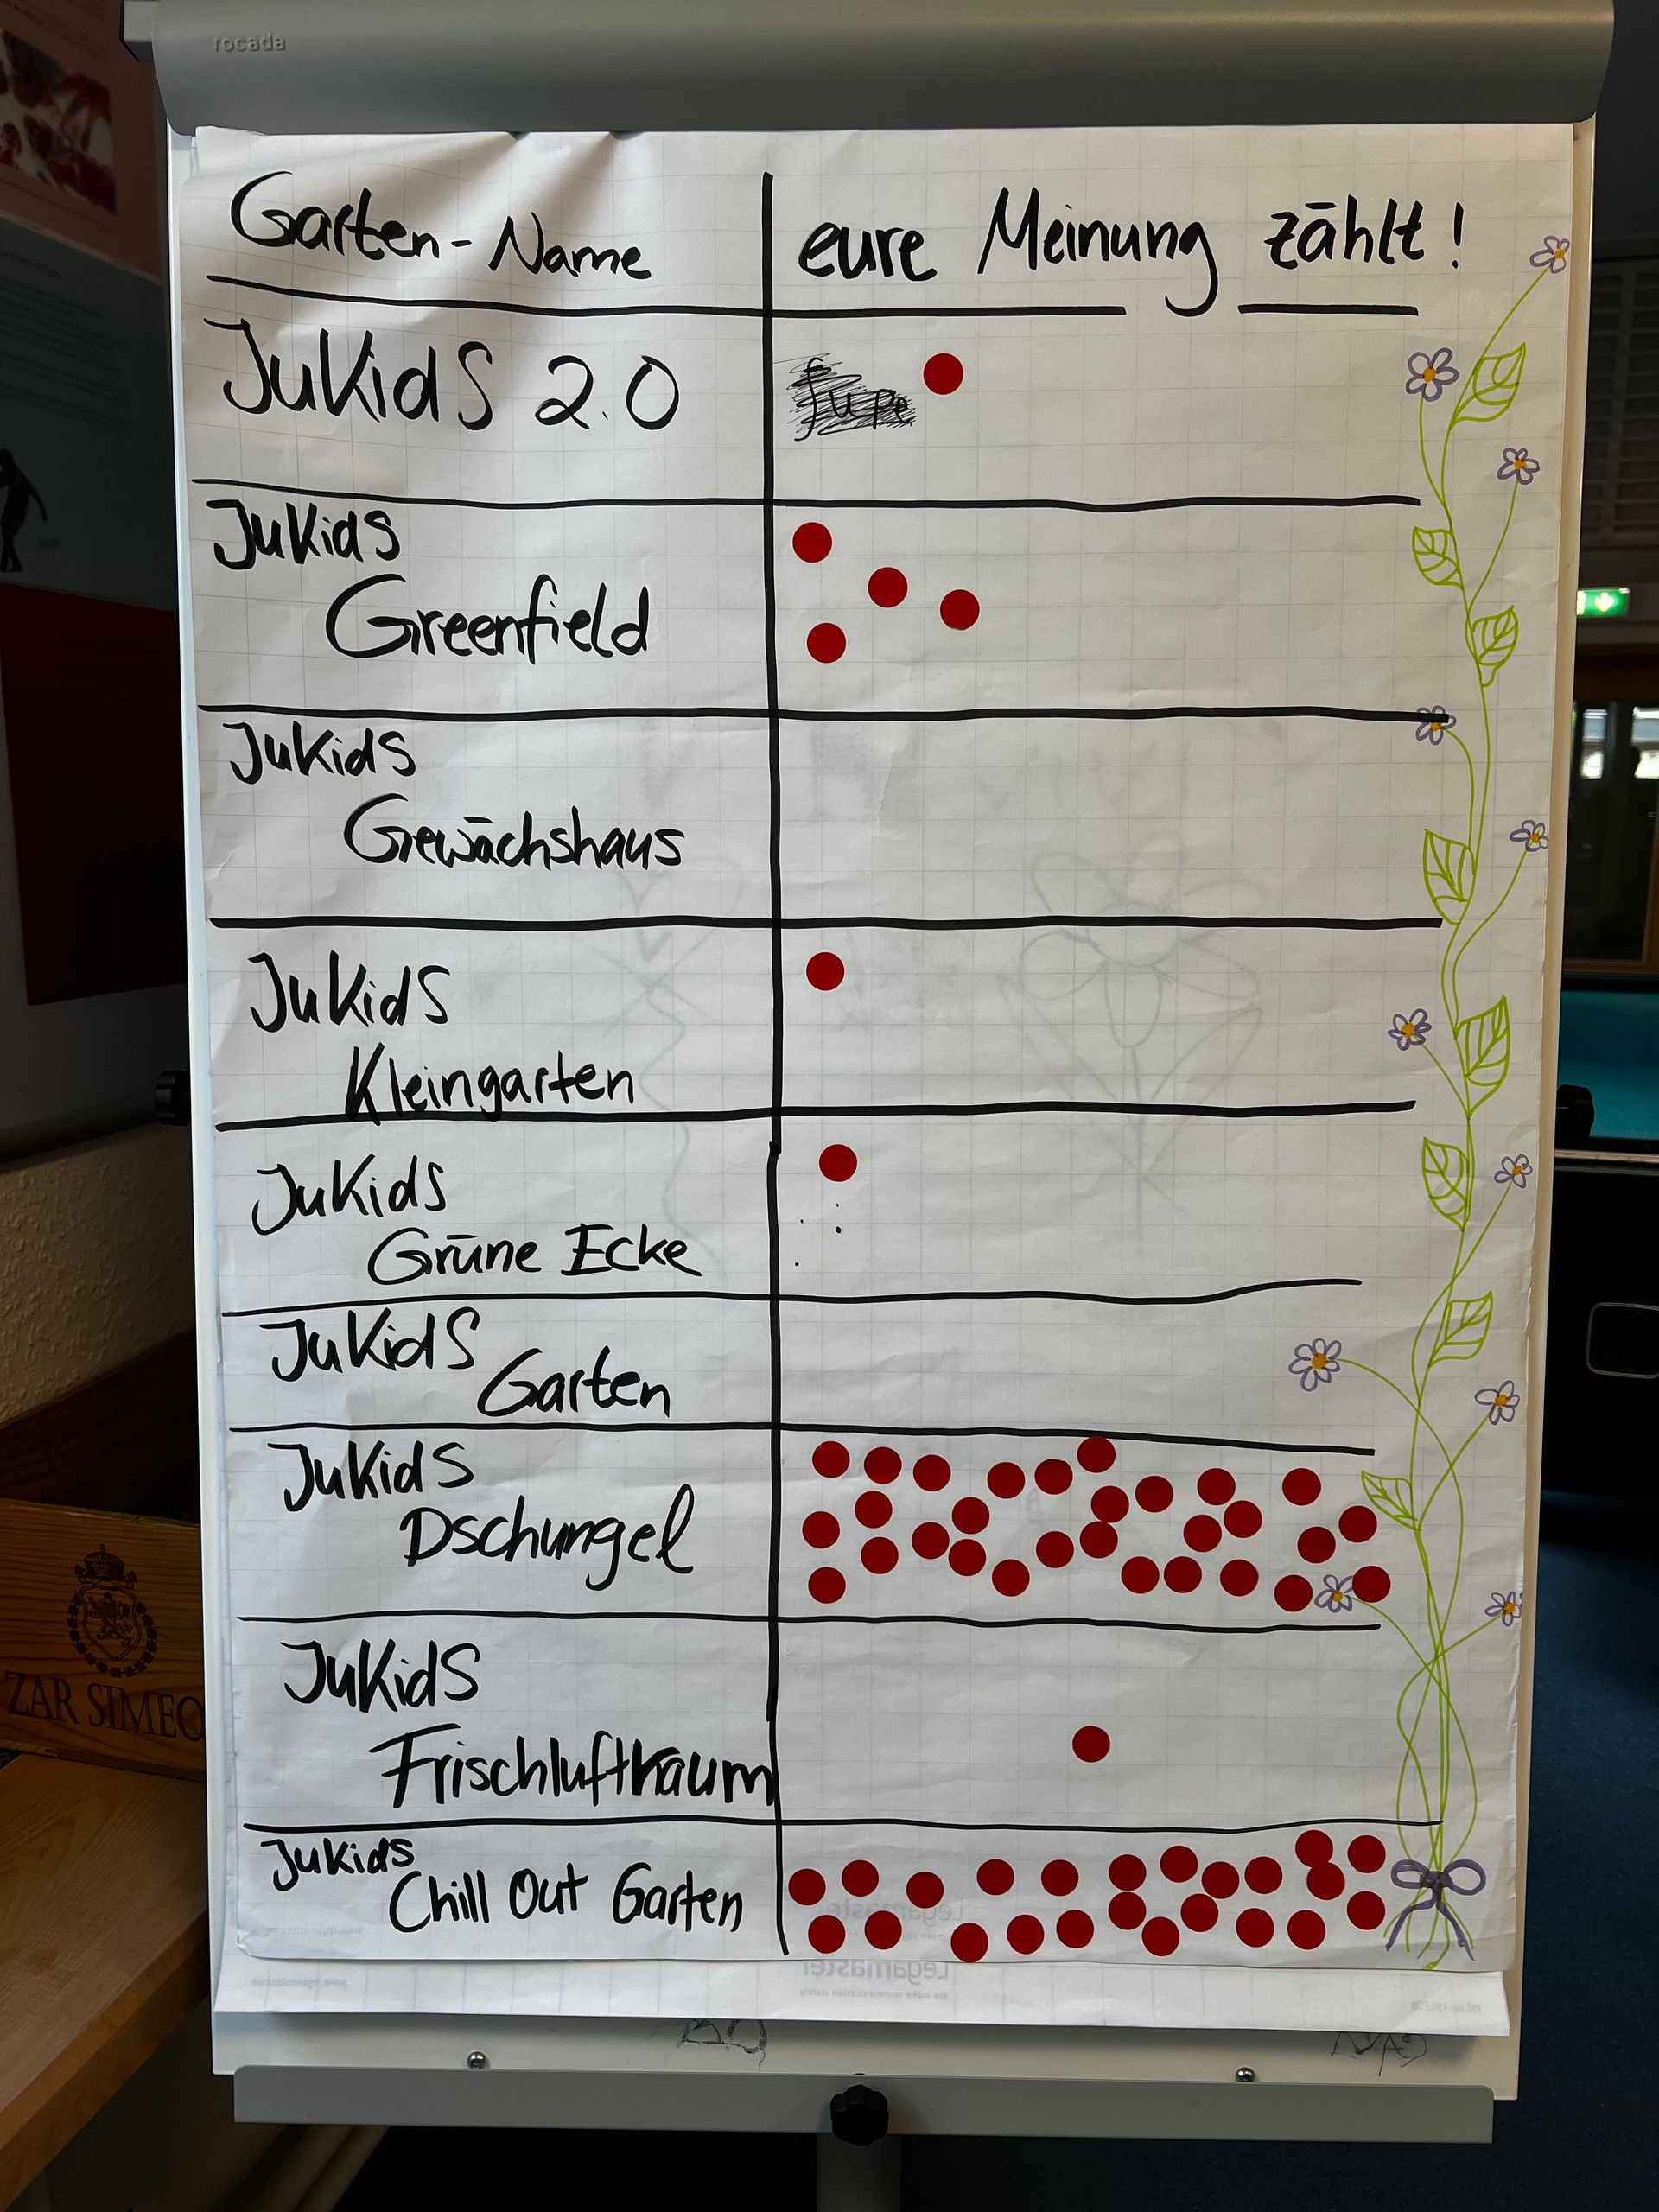 rocada
Garten-Name
eure Meinung zählt!
JuKidS 2.0
JuKidS
Greenfield
JuKidS
Gewächshaus
JuKidS
Kleingarten
JuKidS
Grüne Ecke
JuKidS
Garten
JuKidS
Dschungel
JuKidS
Frischluftraum
JuKidS
Chill Out Garten
Legamaster
Legamaster
We make communication visible
ZAR SIMEO